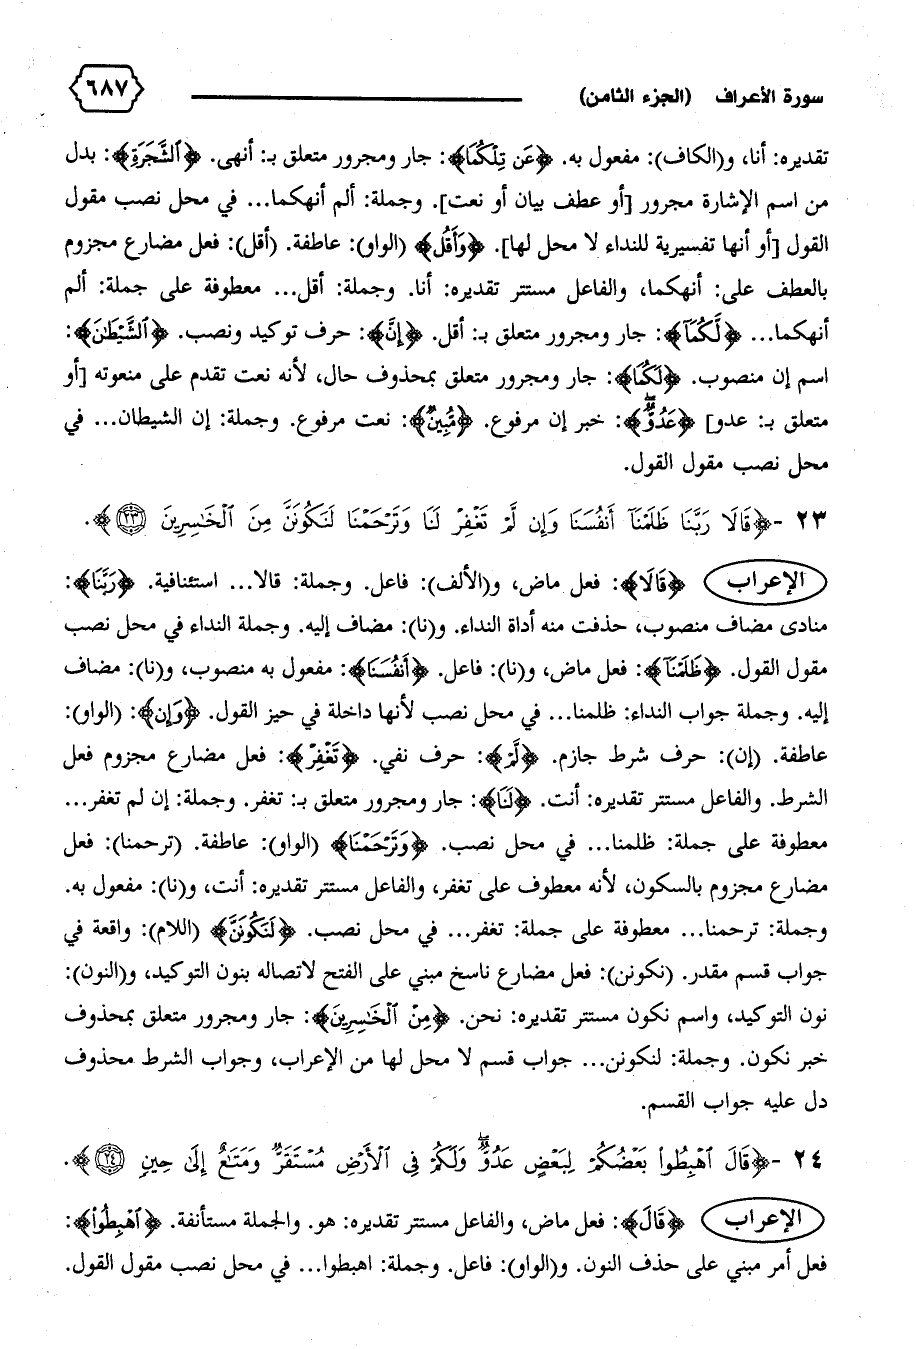 سورة الأعراف (الجزء الثامن)
٦٨٧
تقديره: أنا، و(الكاف): مفعول به. ﴿عَن تِلْكُمَا﴾: جار ومجرور متعلق بـ: أنهى. ﴿ٱلشَّجَرَةِ﴾: بدل
من اسم الإشارة مجرور [أو عطف بيان أو نعت]. وجملة: ألم أنهكما... في محل نصب مقول
القول [أو أنها تفسيرية للنداء لا محل لها]. ﴿وَأَقُل﴾ (الواو): عاطفة. (أقل): فعل مضارع مجزوم
بالعطف على: أنهكما، والفاعل مستتر تقديره: أنا. وجملة: أقل... معطوفة على جملة: ألم
أنهكما... ﴿لَّكُمَآ﴾: جار ومجرور متعلق بـ: أقل. ﴿إِنَّ﴾: حرف توكيد ونصب. ﴿ٱلشَّيْطَـٰنَ﴾:
اسم إن منصوب. ﴿لَكُمَا﴾: جار ومجرور متعلق بمحذوف حال، لأنه نعت تقدم على منعوته [أو
متعلق بـ: عدو] ﴿عَدُوٌّ﴾: خبر إن مرفوع. ﴿مُّبِينٌ﴾: نعت مرفوع. وجملة: إن الشيطان... في
محل نصب مقول القول.
٢٣ -﴿قَالَا رَبَّنَا ظَلَمْنَآ أَنفُسَنَا وَإِن لَّمْ تَغْفِرْ لَنَا وَتَرْحَمْنَا لَنَكُونَنَّ مِنَ ٱلْخَـٰسِرِينَ ٢٣﴾.
الإعراب ﴿قَالَا﴾: فعل ماض، و(الألف): فاعل. وجملة: قالا... استئنافية. ﴿رَبَّنَا﴾:
منادى مضاف منصوب، حذفت منه أداة النداء. و(نا): مضاف إليه. وجملة النداء في محل نصب
مقول القول. ﴿ظَلَمْنَآ﴾: فعل ماض، و(نا): فاعل. ﴿أَنفُسَنَا﴾: مفعول به منصوب، و(نا): مضاف
إليه. وجملة جواب النداء: ظلمنا... في محل نصب لأنها داخلة في حيز القول. ﴿وَإِن﴾: (الواو):
عاطفة. (إن): حرف شرط جازم. ﴿لَّمْ﴾: حرف نفي. ﴿تَغْفِرْ﴾: فعل مضارع مجزوم فعل
الشرط. والفاعل مستتر تقديره: أنت. ﴿لَنَا﴾: جار ومجرور متعلق بـ: تغفر. وجملة: إن لم تغفر...
معطوفة على جملة: ظلمنا... في محل نصب. ﴿وَتَرْحَمْنَا﴾ (الواو): عاطفة. (ترحمنا): فعل
مضارع مجزوم بالسكون، لأنه معطوف على تغفر، والفاعل مستتر تقديره: أنت، و(نا): مفعول به.
وجملة: ترحمنا... معطوفة على جملة: تغفر... في محل نصب. ﴿لَنَكُونَنَّ﴾ (اللام): واقعة في
جواب قسم مقدر. (نكونن): فعل مضارع ناسخ مبني على الفتح لاتصاله بنون التوكيد، و(النون):
نون التوكيد، واسم نكون مستتر تقديره: نحن. ﴿مِنَ ٱلْخَـٰسِرِينَ﴾: جار ومجرور متعلق بمحذوف
خبر نكون. وجملة: لنكونن... جواب قسم لا محل لها من الإعراب، وجواب الشرط محذوف
دل عليه جواب القسم.
٢٤ -﴿قَالَ ٱهْبِطُوا۟ بَعْضُكُمْ لِبَعْضٍ عَدُوٌّ وَلَكُمْ فِى ٱلْأَرْضِ مُسْتَقَرٌّ وَمَتَـٰعٌ إِلَىٰ حِينٍ ٢٤﴾.
الإعراب ﴿قَالَ﴾: فعل ماض، والفاعل مستتر تقديره: هو. والجملة مستأنفة. ﴿ٱهْبِطُوا۟﴾:
فعل أمر مبني على حذف النون. و(الواو): فاعل. وجملة: اهبطوا... في محل نصب مقول القول.